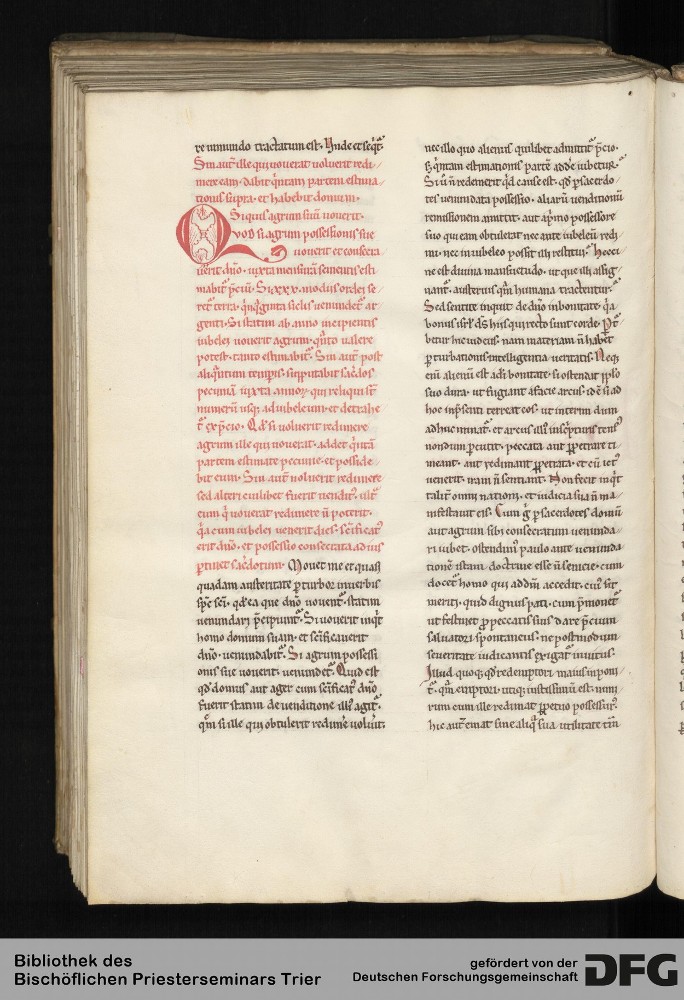 re inmundo tractatum est. Unde et seqͥt᷑.
Sin aut̄ ille qui uouerat uoluerit redi-
mere eam. dabit qͥntam partem estima-
tionis supra. et habebit domum.
Si quis agrum suū uouerit.
Quod si agrum possessionis sue
uouerit et consecra
uerit dn̄o. iuxta mensurā sementis esti
mabit᷑ p̄ciū. Si xxx. modiis ordei se-
ret᷑ terra. qͥnqͣginta siclis uenundet᷑ ar-
genti. Si statim ab anno incipientis
iubelei uouerit agrum. qͣnto ualere
potest. tanto estimabit᷑. Sin aut̄ post
aliqͣntum temporis. supputabit sac̄dos
pecuniā iuxta annoꝝ qui reliqui sūt
numerū usqꝫ ad iubeleum. et detrahe
t᷑ ex p̄cio. Qd̄ si uoluerit redimere
agrum ille qui uouerat. addet qͥntā
partem estimate pecunie. et posside-
bit eum. Sin aut̄ noluerit redimere
sed alteri cuilibet fuerit uendit᷒. ult̄ͣ
eum qͥ uouerat redimere n̄ poterit.
qͥa cum iubelei uenerit dies. sc̄ificat᷒
erit dn̄o. et possessio consecrata ad ius
ꝑtinet sac̄dotum. Mouet me et quasi
quadam austeritate ꝑturbor in uerbis
sp̄c sc̄i. qd̄ ea que dn̄o uouent᷑. statim
uenundari p̄cipiunt᷑. Si uouerit inqͥt
homo domum suam. et sc̄ificauerit
dn̄o. uenundabit᷑. Si agrum possessi
onis sue uouerit. uenundet᷑. Quid est
qd̄ domus aut ager cum sc̄ificat᷒ dn̄o
fuerit statim de uenditione illi᷒ agit᷑.
qm̄ si ille qui obtulerit redim̄e uoluit᷑.
nec illo quo alienus quilibet admittit᷑ p̄cio.
sꝫ qͥntam estimationis partē adde iubetur.
Si u̾ n̄ redemerit qͥd cause est. qd̄ ꝑ sacerdo-
tes uenundata possessio. aliarū uenditionū
remissionem amittit. aut a pͥmo possessore
suo qui eam obtulerat nec ante iubeleū redi-
mi. nec in iubeleo possit illi restitui. Hecci-
ne est diuina mansuetudo. ut que illi assig-
nant᷑. austerius qͣm humana tractentur.
Sed sentite inquit de dn̄o in bonitate. qͥa
bonus isrl̄ ds̄ hiis qui recto sunt corde. P̄t
betur hic uideris. nam materiam n̄ habet
ꝑturbationis intelligentia ueritatis. Neqꝫ
eni᷒ alienū est a dei bonitate. si ostendat pplo
suo dura. ut fugiant a facie arcus. id ē si ad
hoc in p̄senti terreat eos. ut interim dum
adhuc minat᷑. et arcus illi᷒ in sc̄pturis tens᷒
nondum ꝑcutit. peccata aut ꝑpetrare ti-
meant. aut redimant ꝑpetrata. et cū ict᷒
uenerit. iram n̄ sentiant. Non fecit inqͥt
talit̾ omni nationi. et iudicia sua n̄ ma-
nifestauit eis. Cum gͦ ꝑ sacerdotes domū
aut agrum sibi consecratum uenunda-
ri iubet. ostendim᷒ paulo ante uenunda
tionē istam doctrine esse n̄ semicie. cum
docet᷑ homo qui ad dn̄m accedit. cui᷒ sit
meriti. quid dignus pati. cum p̄monet᷑
ut festinet ꝓ peccatis suis dare p̄cium
saluatori spontaneus. ne postmodum
seueritate iudicantis exigat᷑ inuitus.
Illud quoqꝫ qd̄ redemptori maius inponi-
t᷑. qͣm emptori. utiqꝫ iustissimū est. nimi
rum cum ille redimat ꝑpetuo possessur᷒.
hic aut̄ emat sine aliqͣ sua utilitate tm̄
Bibliothek des
Bischöflichen Priesterseminars Trier
gefördert von der
Deutschen Forschungsgemeinschaft
DFG